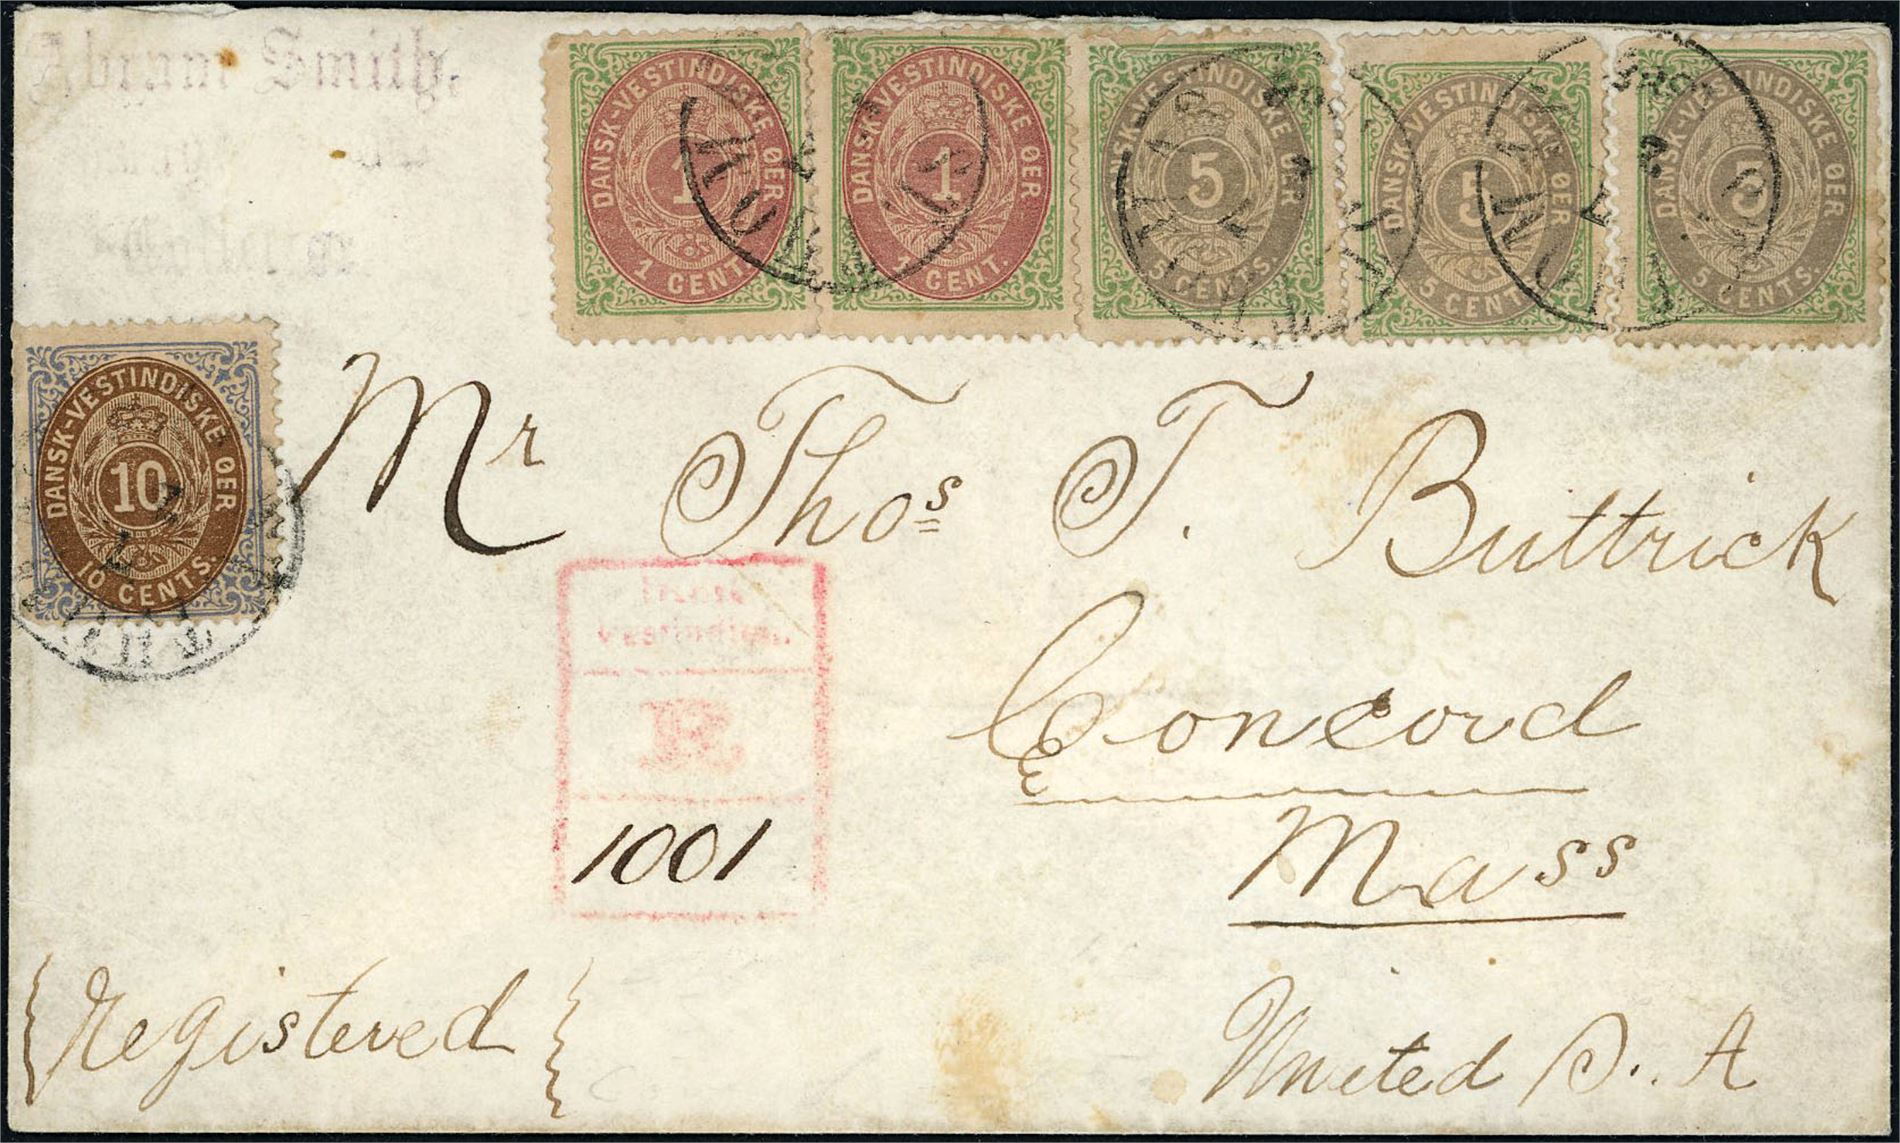 Abram Smith.
DANSK-VESTINDISKE ØER
1
1 CENT.
DANSK-VESTINDISKE ØER
1
1 CENT.
DANSK-VESTINDISKE ØER
5
5 CENTS.
DANSK-VESTINDISKE ØER
5
5 CENTS
DANSK-VESTINDISKE ØER
5
5 CENTS.
DANSK-VESTINDISKE ØER
10
10 CENTS.
Mr Thos T. Buttrick
Concord
Mass
United S. A
Vestindien
R
1001
{Registered}